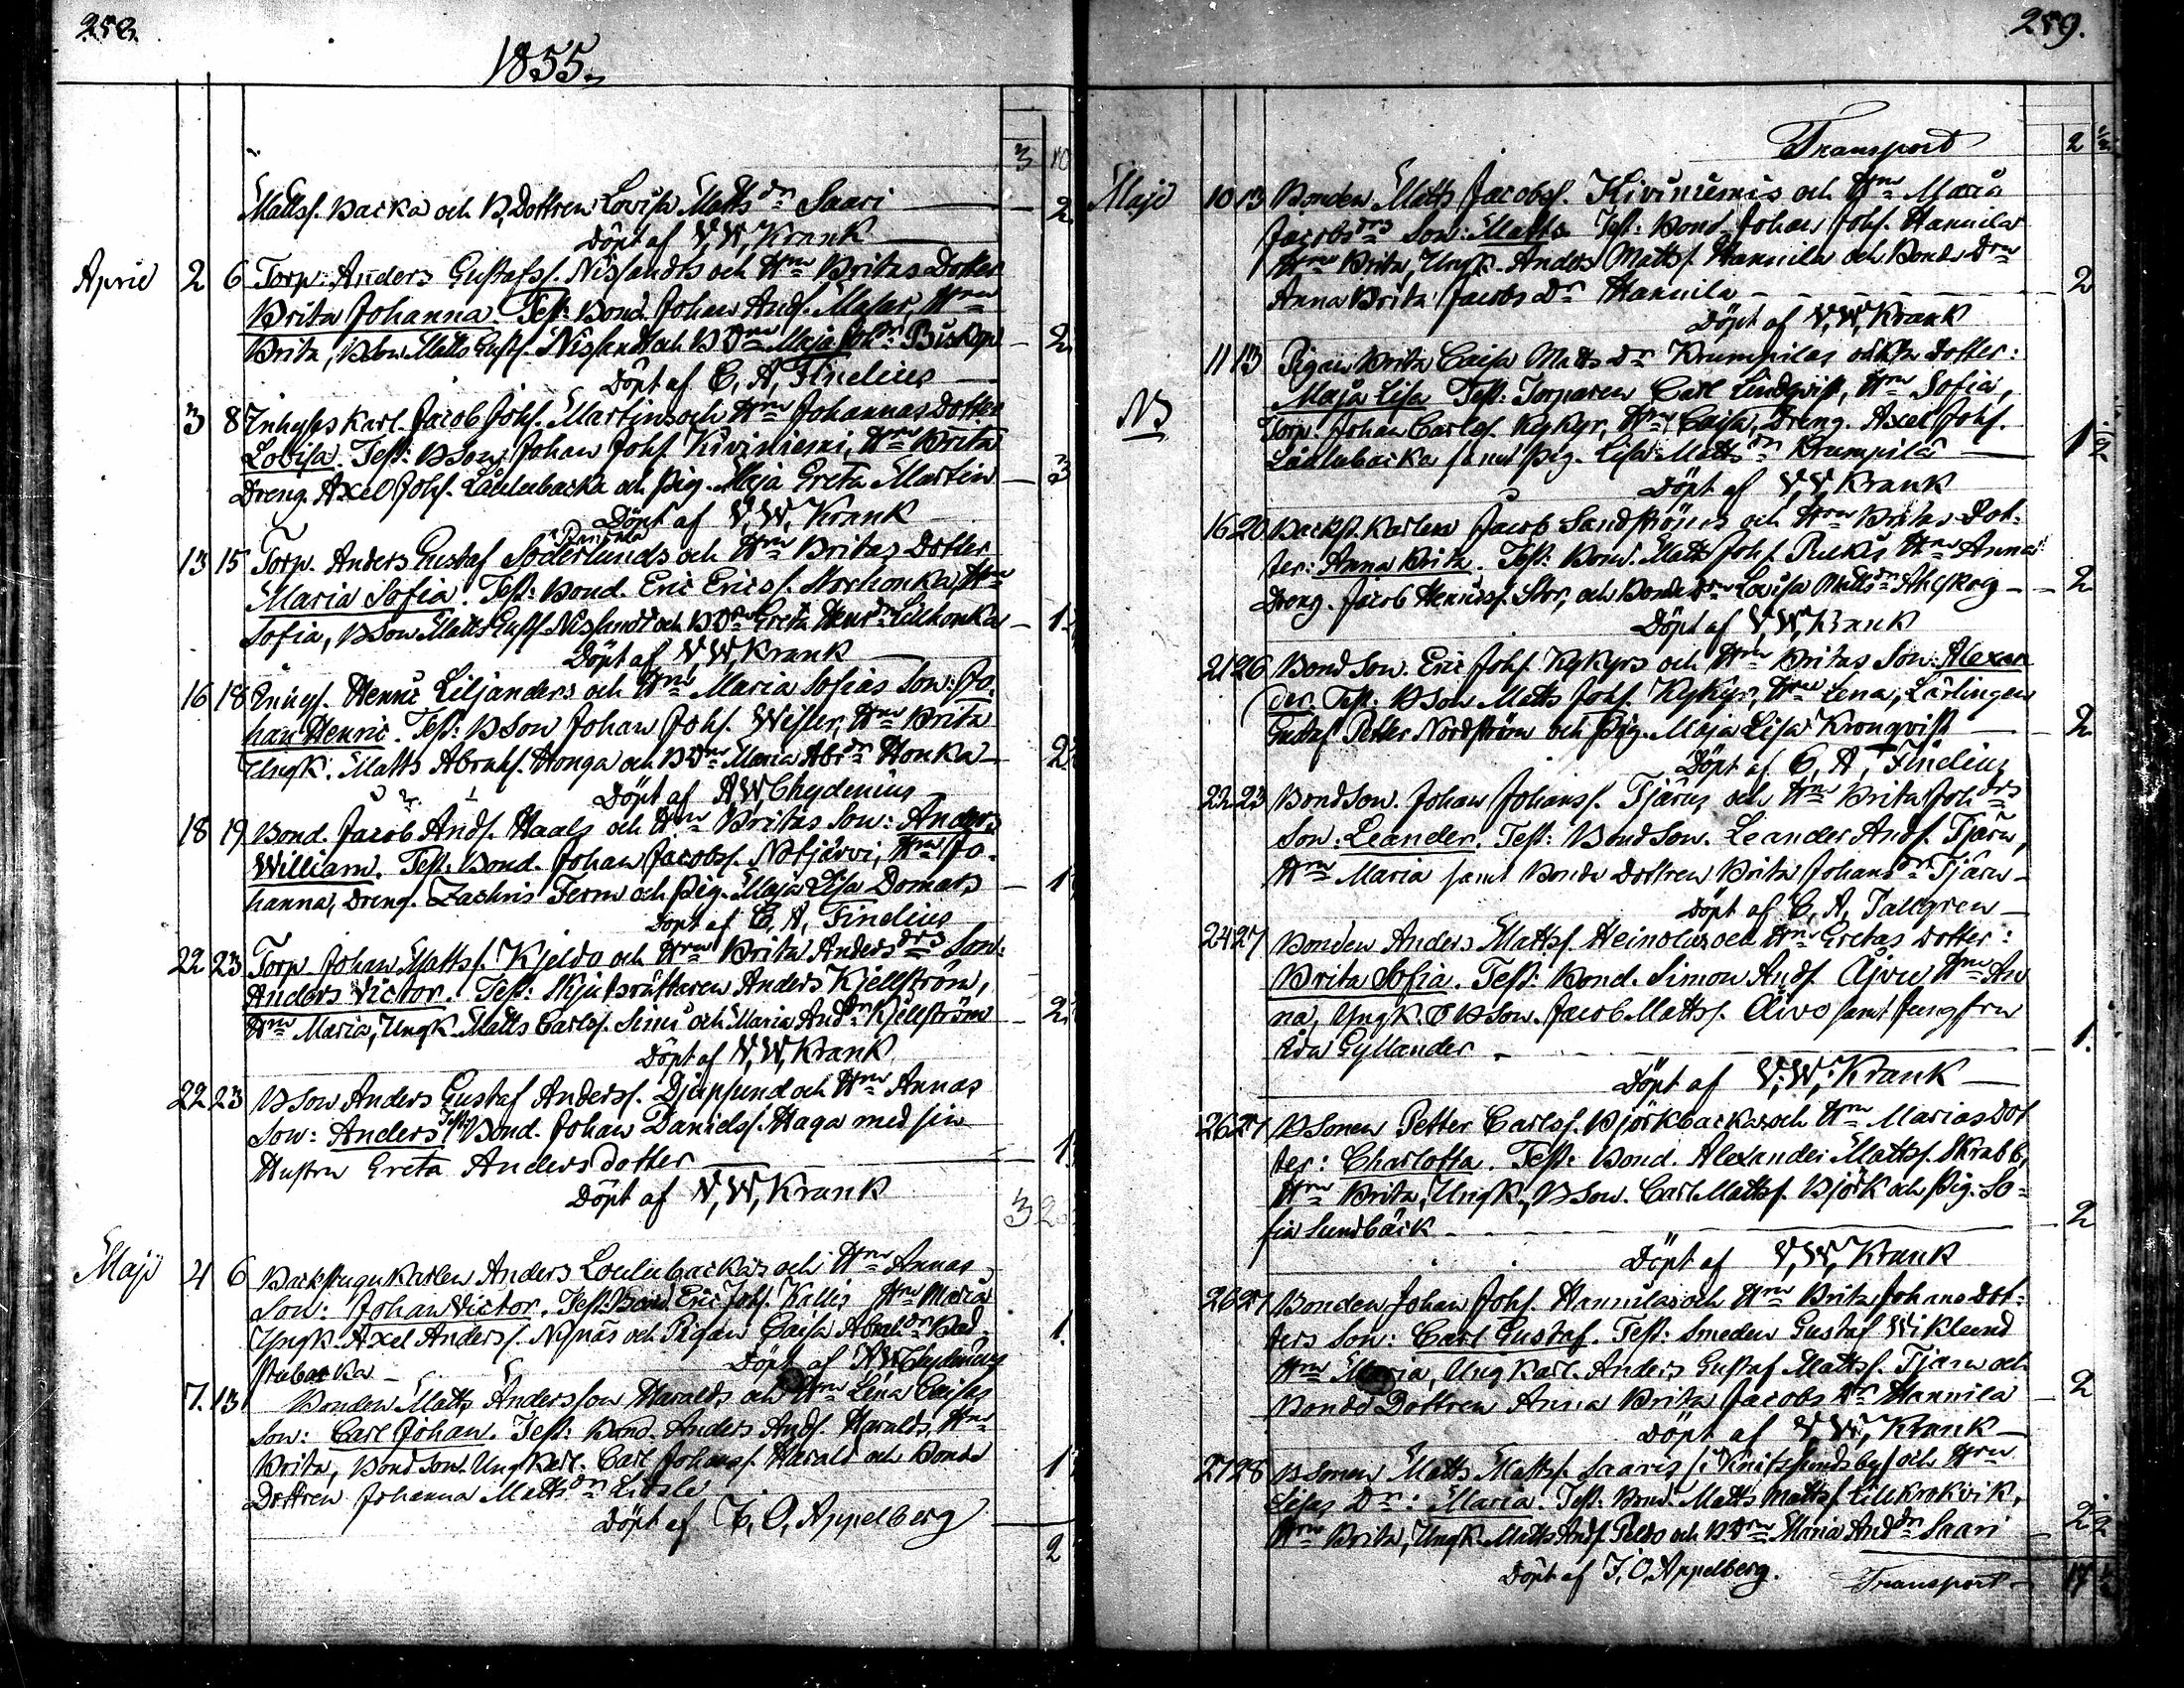 258.
1855.
3 10
Mattss. Backa och B,Dottren Lovisa Matts dr Saari — 2
Döpt af V, W, Krank
April 2 6 Torp. Anders Gustafss. Nisslandts och Hru Britas Dotter
Brita Johanna. Test: Bond. Johan Ands. Masar, Hru
Brita, BSon Matts Gusts. Nisslandt och BDr Maja Joh dr Biskop — 2
Döpt af C, A, Findelius
3 8 Inhyses Karl. Jacob Johs. Martins och Hru Johannas Dotter
Lovisa. Test: BSon Johan Johs. Kiviniemi, Hru Brita
Dreng. Axel Johs. Låulubacka och Pig. Maja Greta Martin — 3
Döpt af V, W, Krank
13 15 Torp. Anders Gustaf Söderlunds och Hru Britas Dotter
Maria Sofia. Test: Bond. Eric Erics s. Storhonka, Hru
Sofia, BSon Matts Gusts. Nisslandt och BDr Greta Henr dr Lillhonka — 1
Döpt af V, W, Krank
16 18 Inhys. Henric Liljanders och Hru Maria Sofias Son: Jo-
han Henric. Test: BSon Johan Johs. Wisser, Hru Brita
Ungk. Matts Abrahs. Honga och BDr Maria Abr dr Honka — 2
Döpt af A W Chydenius
18 19 Bond. Jacob Ands. Haals och Hru Britas Son: Anders
William. Test: Bond. Johan Jacobss. Notjärvi, Hru Jo-
hanna, Dreng. Zachris Ferm och Pig. Maja Lisa Domars — 1
Döpt af C, A, Findelius
22 23 Torp. Johan Mattss. Kjeldo och Hru Brita Anders drs Son:
Anders Victor. Test: Skjutsrättaren Anders Kjellström,
Hru Maria, Ungk. Matts Carlss. Simi och Maria And dr Kjellström — 2
Döpt af V, W, Krank
22 23 BSon Anders Gustaf Anderss. Djupsund och Hru Annas
Son: Anders Test: Bond. Johan Daniels s. Haga med sin
Hustru Greta Andersdotter — 1
Döpt af V, W, Krank
3 2
Maji 4 6 Backstugu Karlen Anders Loulubackas och Hru Annas
Son: Johan Victor. Test: Bond. Eric Johs. Kallis Hru Maria
Ungk. Axel Anderss. Nynäs och Pigan Caisa Abrah dr Bad-
stubacka — 1
Döpt af A W Chydenius
7. 13 Bonden Matts Andersson Haralds och Hru Lena Caisas
Son: Carl Johan. Test: Bond. Anders Ands. Haralds, Hru
Brita, Bond Son. Ungkarl. Carl Johanss. Harald och Bonde
Dottren Johanna Matts dr Lissle — 1
Döpt af J, O, Appelberg
2
259.
Transport 2
Maji 10 13 Bonden Matts Jacobss. Kiviniemis och Hru Maria
Jacobs drs Son: Matts Test: Bond. Johan Johs. Hannila
Hru Brita, Ungk. Anders Mattss. Hannila och Bonde Dr
Anna Brita Jacobs Dr Hannila — 2
Döpt af V, W, Krank
11 13 Pigan Brita Caisa Matts Dr Krumpilas oäkta Dotter:
Maja Lisa Test: Torparen Carl Lindqvist, Hru Sofia,
NB Torp. Johan Carlss. Kykyr, Hru Caisa, Dreng. Axel Johs.
Låulubacka samt Pig. Lisa Matts dr Krumpila — 1 1/2
Döpt af V, W, Krank
16 20 Backst. Karlen Jacob Sandströms och Hru Britas Dot-
ter: Anna Brita. Test: Bond. Matts Johs. Pulkis Hru Anna
Dreng. Jacob Henricss. Stor, och Bonde Dr Lovisa Matts dr Åhlskog — 2
Döpt af V, W, Krank
21 26 Bond Son. Eric Johs. Kykyrs och Hru Britas Son: Alexan
der. Test: BSon Matts Johs. Kykyr, Hru Lena, Lärlingen
Gustaf Petter Nordström och Pig. Maja Lisa Kronqvist — 2
Döpt af C, A, Findelius
22 23 Bond Son. Johan Johanss. Tjärus och Hru Brita Joh drs
Son: Leander. Test: Bond Son. Leander Ands. Tjäru,
Hru Maria samt Bonde Dottren Brita Johans dr Tjäru —
Döpt af C, A, Tallgren
24 27 Bonden Anders Mattss. Heinolas och Hru Gretas Dotter:
Brita Sofia. Test: Bond. Simon Ands. Åjvu Hru An
na, Ungk. BSon. Jacob Mattss. Åivo samt Jungfru
Ada Gyllander — 1.
Döpt af V, W, Krank
26 27 BSonen Petter Carlss. Björkbackas och Hru Marias Dot
ter: Charlotta. Test: Bond. Alexander Mattss. Skrabb,
Hru Brita, Ungk, BSon. Carl Mattss. Björk och Pig. So-
fia Sundbäck — 2
Döpt af V, W, Krank
26 27 Bonden Johan Johs. Hannilas och Hru Brita Johans Dot-
ters Son: Carl Gustaf. Test: Smeden Gustaf Wiklund
Hru Maria, Ungkarl. Anders Gustaf Mattss. Tjäru och
Bonde Dottren Anna Brita Jacobs Dr Hannila — 2
Döpt af V, W, Krank
27 28 BSonen Matts Mattss. Saaris (i Knitssundsby) och Hru
Lisas Dr: Maria. Test: Bond. Matts Mattss. Lillkrokvik,
Hru Brita, Ungk. Matts Ands. Peldo och BDr Maria And dr Saari — 2 1/2
Döpt af J, O, Appelberg.
Transport — 17 1/2